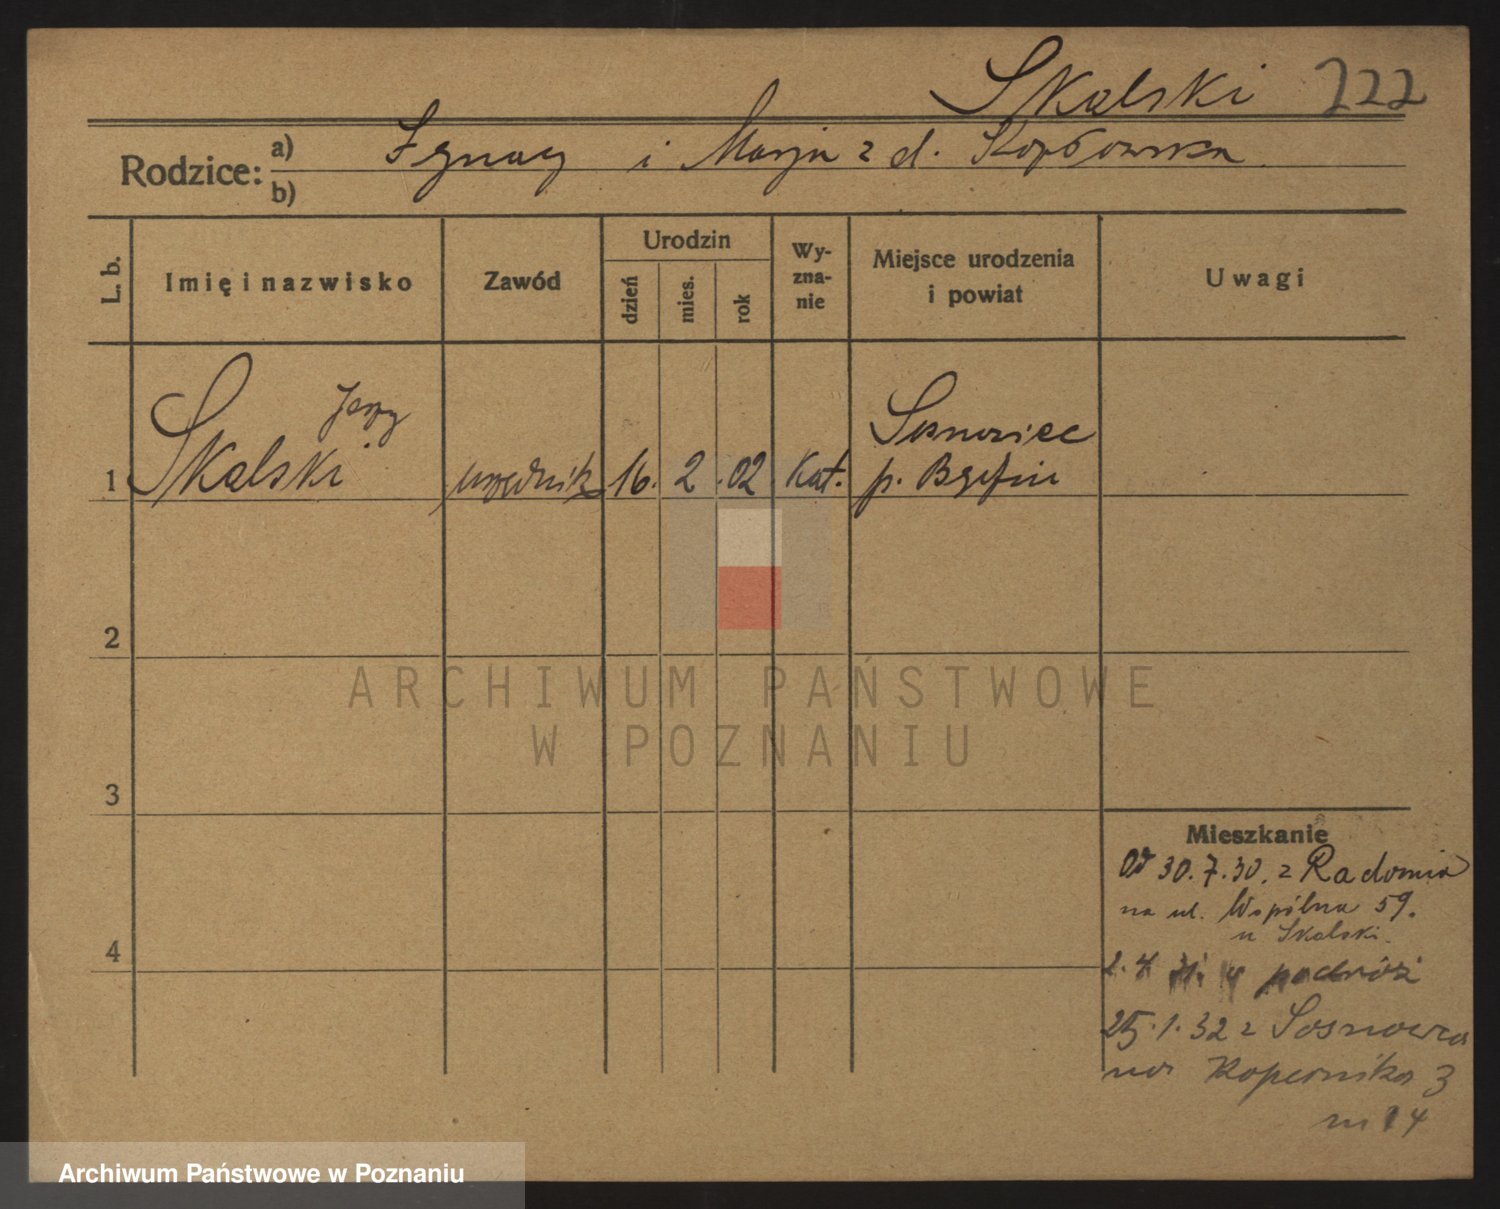 Skalski 222
Rodzice: a) Ignacy i Marja z d.
b)
L. b. Imię i nazwisko Zawód Urodzin dzień mies. rok Wy-zna-nie Miejsce urodzenia i powiat Uwagi
Jerzy Sosnowiec
1 Skalski urzędnik 16. 2 .02 Kat. p. Będzin
2
ARCHIWUM PAŃSTWOWE
W POZNANIU
3
Mieszkanie
Od 30.7.30. z Radomia
na ul. Wspólna 59.
u Skalski.
4
w podróż
25.1.32 z Sosnowca
na Kopernika 3
m 14
Archiwum Państwowe w Poznaniu